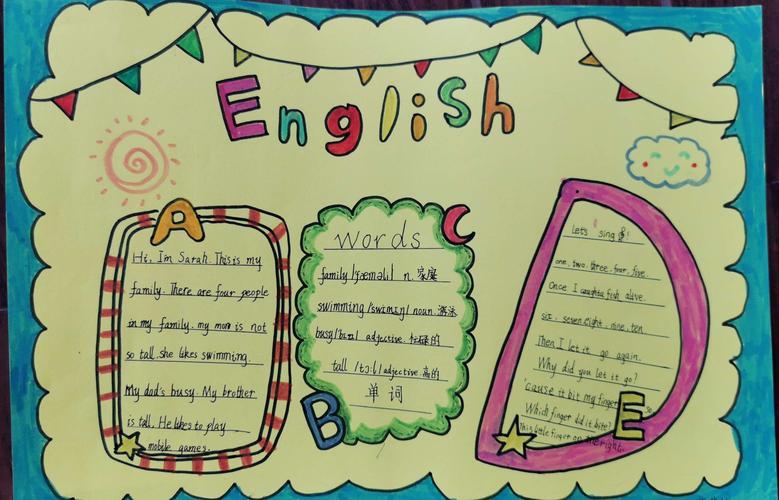 English
A
Hi, I'm Sarah. This is my
family. There are four people
in my family. my mom is not
so tall. she likes swimming.
My dad's busy. My brother
is tall. He likes to play
mobile games.
C
words
family n. 家庭
swimming noun. 游泳
busy adjective.
tall /tɔ:l/ adjective 高的
单词
B
Let's sing
one. two. three. four. five.
Once I caught a fish alive.
six. seven. eight. nine. ten
Then I let it go again.
Why did you let it go?
'cause it bit my finger so
Which finger did it bite?
This little finger on the right.
E